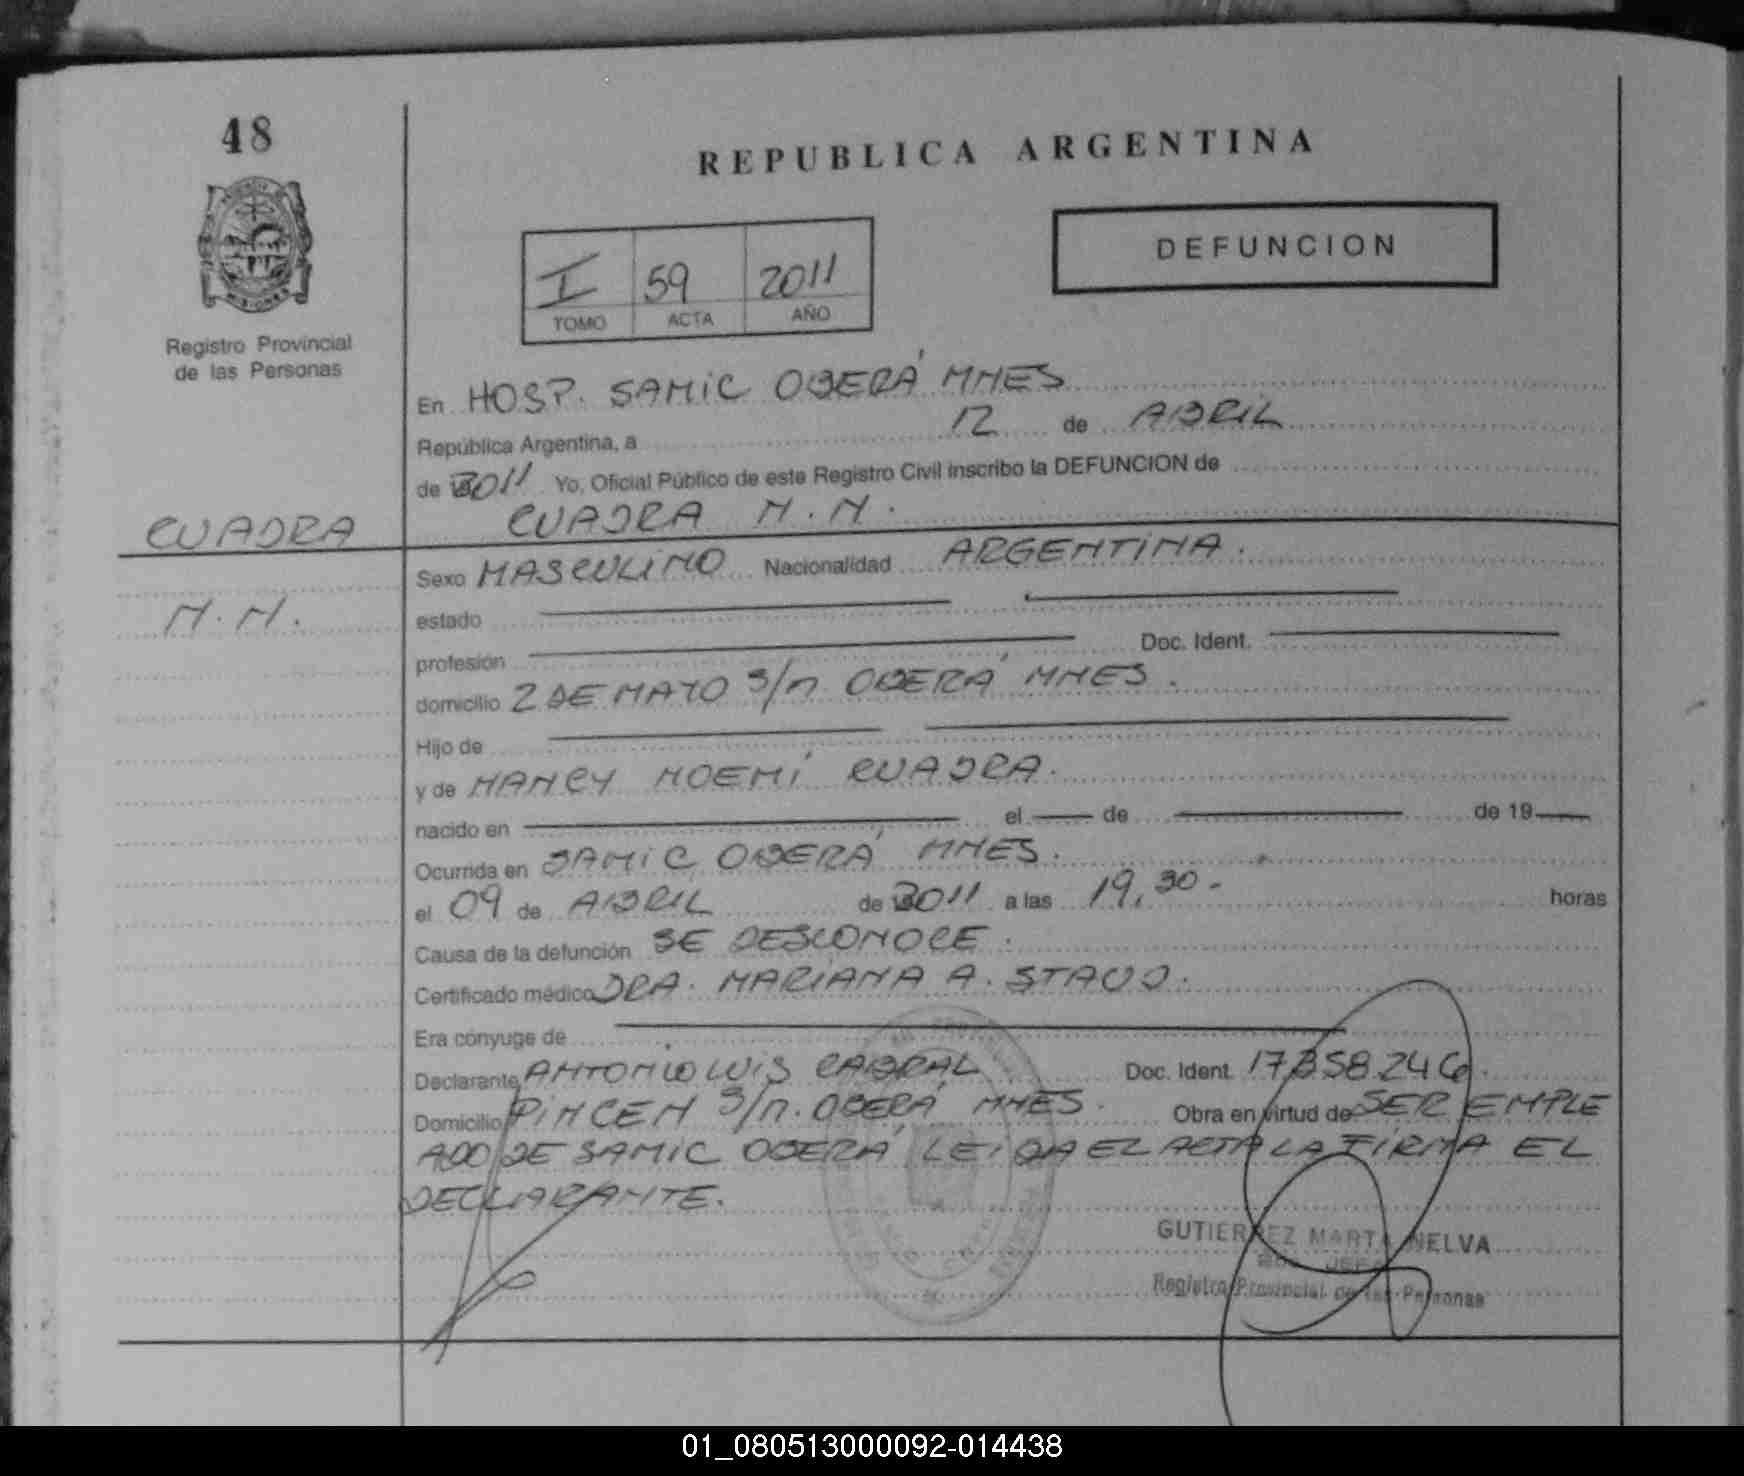 48
REPUBLICA ARGENTINA
DEFUNCION
I 59 2011
TOMO ACTA AÑO
Registro Provincial
de las Personas
En HOSP. SAMIC OBERÁ MNES
República Argentina, a 12 de ABRIL
de 2011 Yo, Oficial Público de este Registro Civil inscribo la DEFUNCION de
CUADRA CUADRA N.N.
Sexo MASCULINO Nacionalidad ARGENTINA.
N.N.
estado
profesión Doc. Ident.
domicilio 2 DE MAYO S/n OBERÁ MNES.
Hijo de
y de NANCY NOEMÍ CUADRA.
nacido en el de de 19
Ocurrida en SAMIC OBERÁ MNES.
el 09 de ABRIL de 2011 a las 19,30- horas
Causa de la defunción SE DESCONOCE.
Certificado médico DRA. MARIANA A. STAUD.
Era cónyuge de
Declarante ANTONIO LUIS CABRAL Doc. Ident. 17.858.246.
Domicilio PINCEN S/n. OBERÁ MNES. Obra en virtud de SER EMPLE
ADO DE SAMIC OBERÁ LEIDA EL ACTA LA FIRMA EL
DECLARANTE.
GUTIERREZ MARTA NELVA
JEFA
Registro Provincial de las Personas
01_080513000092-014438